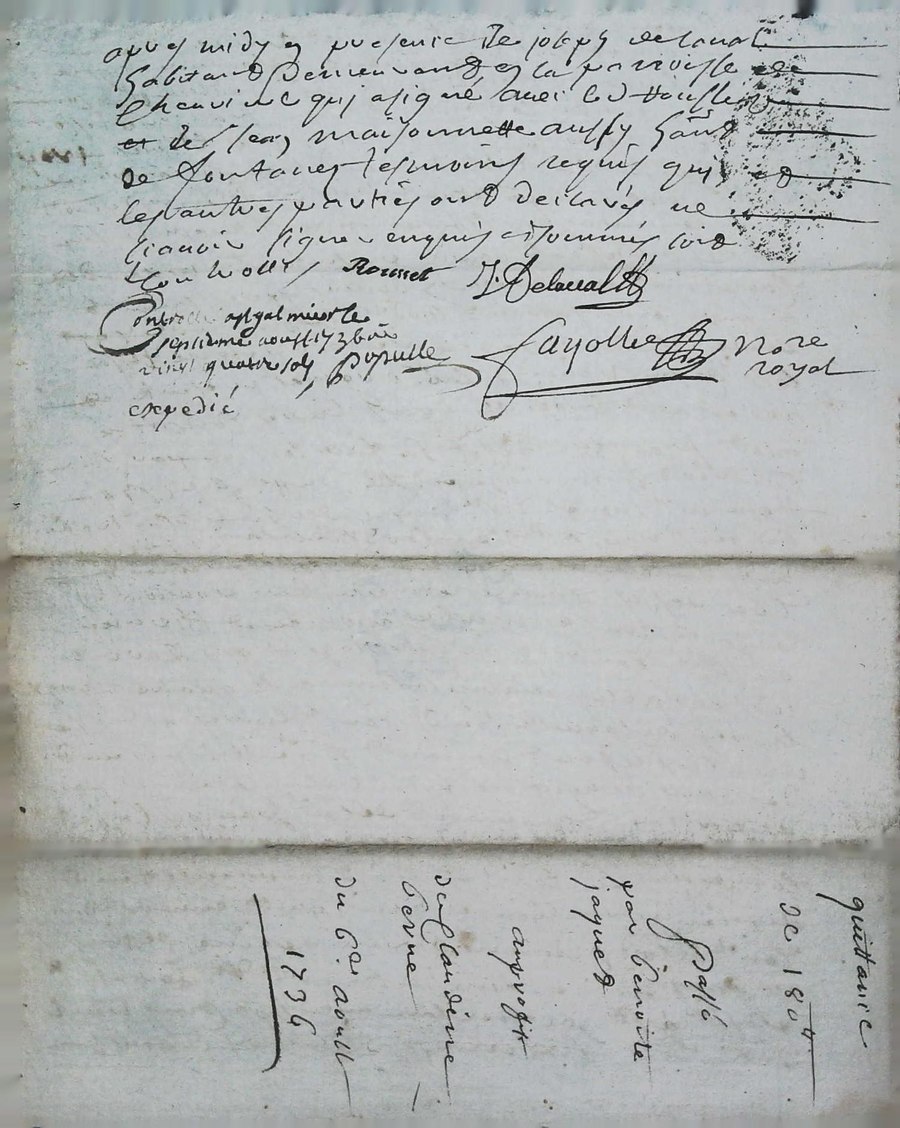 apres midy en presence de joseph delaval
habitand demeurand en la parroisse de
Chevrieve qui a signé avec led Rousset
et de Jean maisonnette aussy habitd
de fontanes tesmoins requis qui et
les autres parties ond declarés ne
scavoir signer enquis et sommés soid
Controllé Rousset J. Delaval
Controllé a st galmier le
septieme aoust 1736 reçu
vingt quatre sols
fayolle Nore
royal
expedié
quittance
de 180 tt
passé
par benoite
jaques
au profit
de Claudine
berne
du 6e aoust
1736